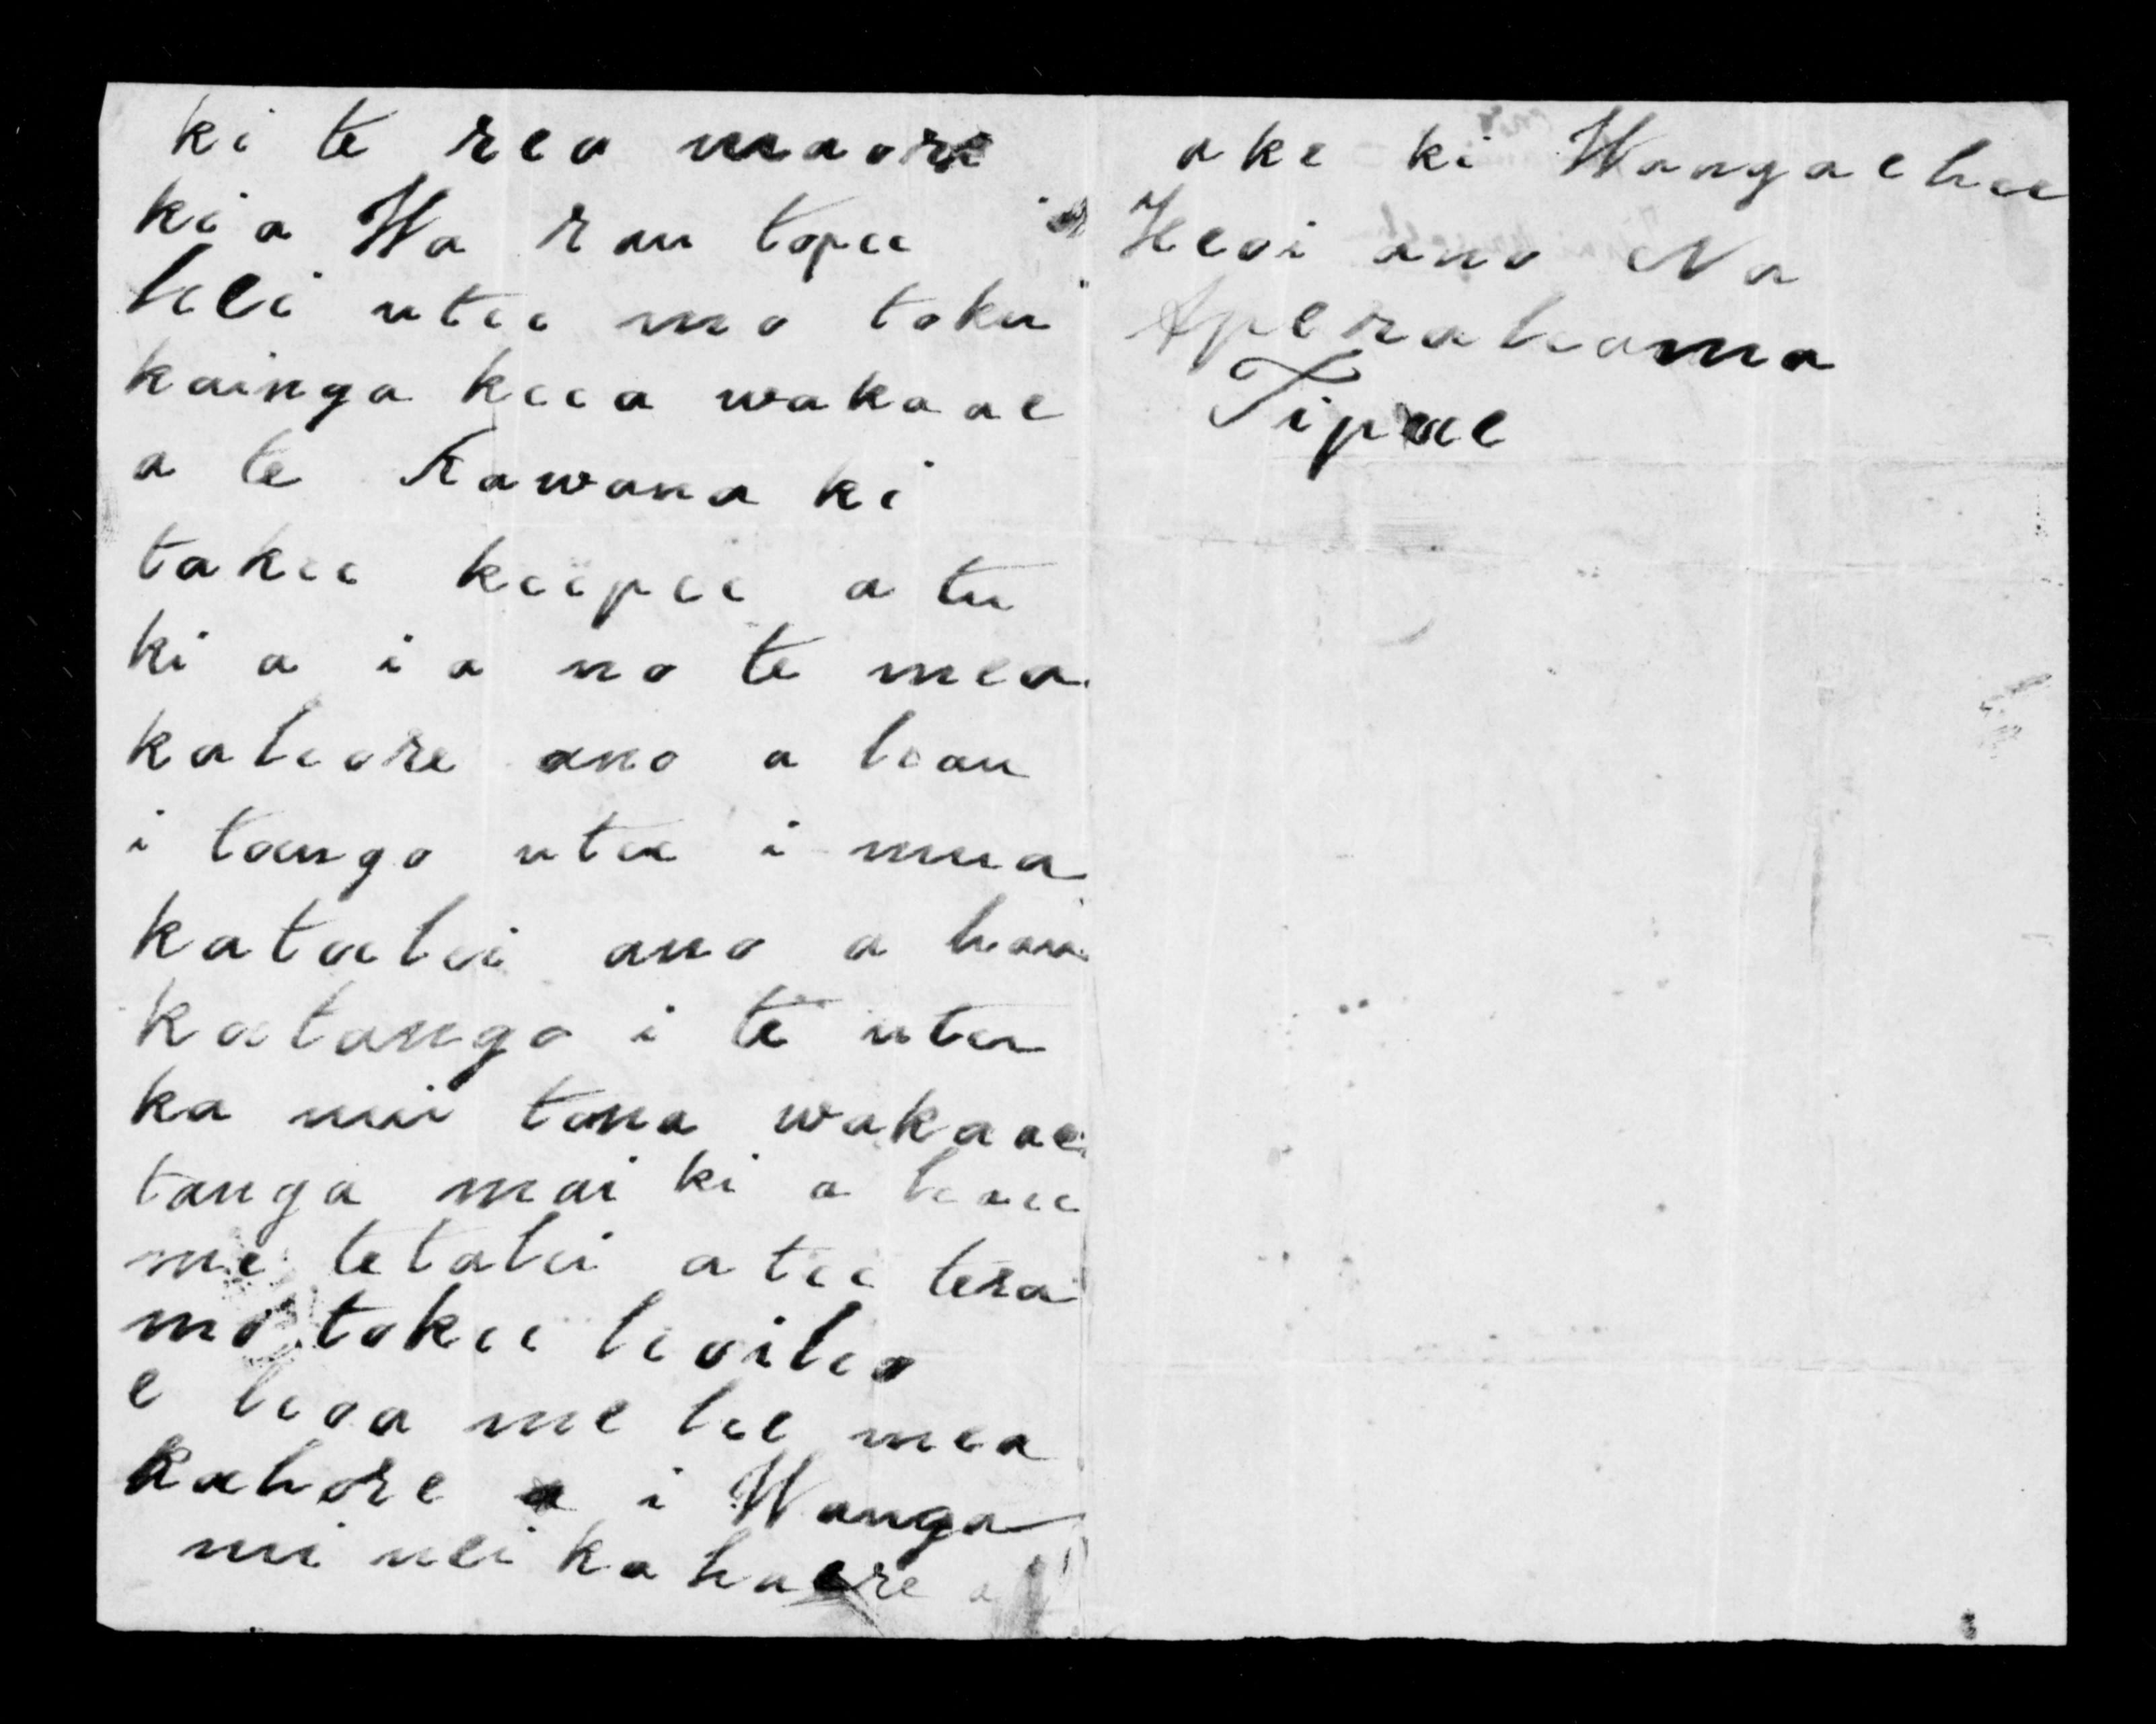 ki te reo maori
ki a Wa rau topu
hei utu mo toku
kainga kua wakaae
a te Kawana ki
taku kupu a tu
ki a i a no te mea
kahore ano a hau
i tango utu i mua
katahi ano a hau
katango i te utu
ka nui tona wakaae
tanga mai ki a hau
me tetahi atu tera
mo toku hoiho
e hoa me he mea
kahore i Wanga
nui nei ka haere a
ake ki Wangaehu
Heoi ano Na
Aperahama
Tipae